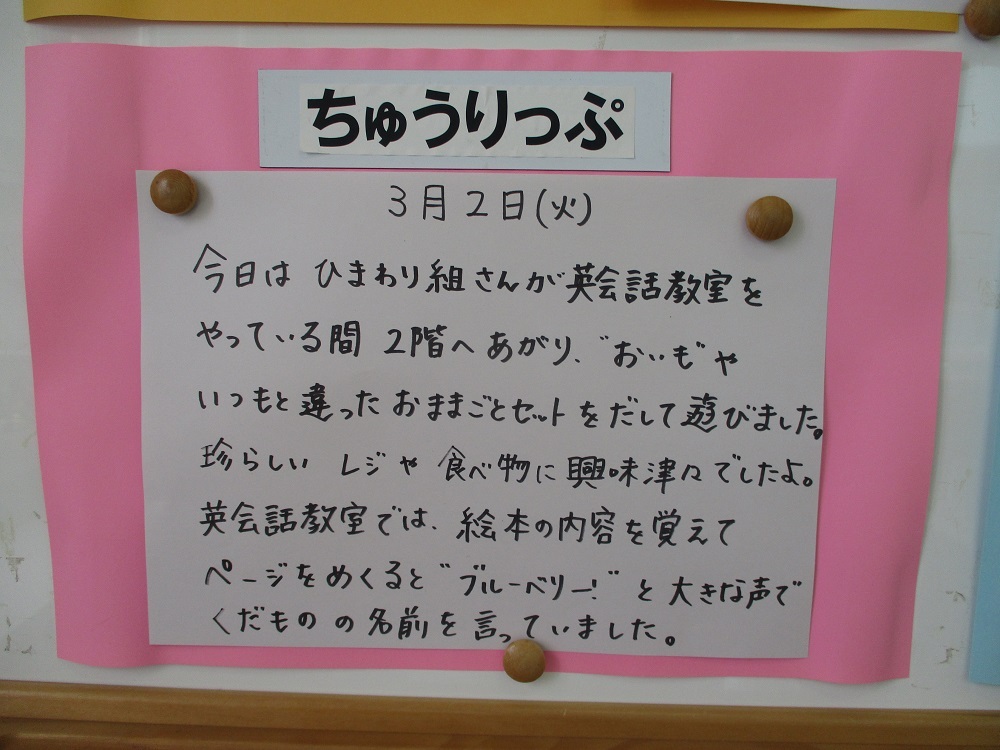 ちゅうりっぷ
3月2日(火)
今日は ひまわり組さんが英会話教室を
やっている間 2階へあがり、"おいも"や
いつもと違ったおままごとセットをだして遊びました。
珍らしい レジや 食べ物に興味津々でしたよ。
英会話教室では、絵本の内容を覚えて
ページをめくると"ブルーベリー!"と大きな声で
くだものの名前を言っていました。